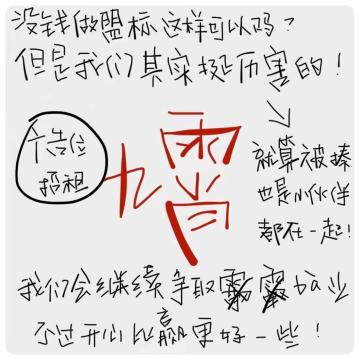 没钱做盟标这样可以吗？
但是我们其实挺厉害的！
广告位
招租
九霄
就算被揍
也是小伙伴
都在一起！
我们会继续争取
不过开心比赢更好一些！